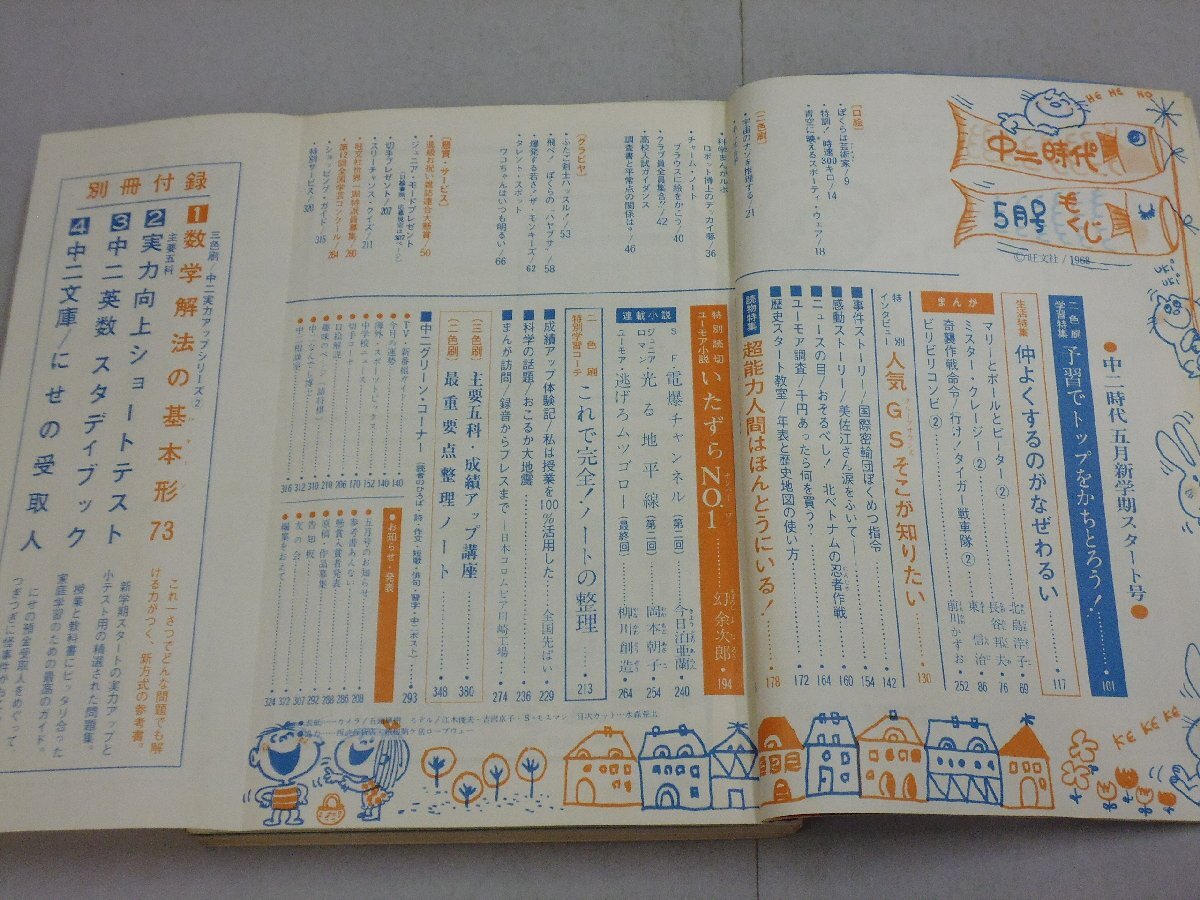 HE HE HO
中二時代
5月号
もくじ
©旺文社/1968
●中二時代 五月新学期スタート号●
二色刷
学習特集
予習でトップをかちとろう!
101
生活特集
仲よくするのがなぜわるい
117
まんが
マリーとポールとピーター②
北島洋子
69
ミスター・クレージー②
長谷邦夫
76
奇襲作戦命令/行け!タイガー戦車隊②
東信治
86
ビリビリコンビ②
前川かずお
252
特別
インタビュー
人気GSそこが知りたい
130
・事件ストーリー/国際密輸団ぼくめつ指令
142
・感動ストーリー/美佐江さん涙をふいて
154
・ニュースの目/おそるべし!北ベトナムの忍者作戦
160
・ユーモア調査/千円あったら何を買う?
164
・歴史スタート教室/年表と歴史地図の使い方
172
読物特集
超能力人間はほんとうにいる!
178
〔口絵〕
・ぼくらは芸術家/9
・特訓!時速300キロ/14
・青空に映えるスポーティ・ウェア/18
〔二色刷〕
・宇宙のナゾを推理する/21
ロボット博士のデッカイ夢/36
・チャーム・ノート
ブラウスに絵をかこう/40
・クラブ員全員集合!!/42
・高校入試ガイダンス
調査書と平常点の関係は?/46
〔グラビヤ〕
・ふたご剣士ハッスル!/53
・飛べ!ぼくらの"ハヤブサ"/58
・爆発する若さ〝ザ・モンキーズ〟/62
・タレント・スポット
ワコちゃんはいつも明るい/66
〔懸賞・サービス〕
・進級お祝い雑誌連合大懸賞/50
・ジュニア・モードプレゼント
・切手プレゼント/207
・スリーチャンス・クイズ/211
・旺文社世界一周特派員募集/260
・第12回全国学芸コンクール/264
・ショッピング・ガイド/315
・特別サービス/320
特別読切
ユーモア小説
いたずらNO.1
幻余次郎
194
連載小説
SF
電爆チャンネル(第二回)
今日泊亜蘭
240
ジュニア
ロマン
光る地平線(第二回)
岡本朝子
254
ユーモア・逃げろムツゴロー(最終回)
柳川創造
264
二色刷
特別学習コーチ
これで完全!ノートの整理
213
・成績アップ体験記/私は授業を100%活用した
全国先ぱい
229
・科学の話題/おこるか大地震
236
・まんが訪問/録音からプレスまで―日本コロムビア川崎工場
274
〈三色刷〉主要五科・成績アップ講座
380
〈二色刷〉最重要点整理ノート
348
■中二グリーン・コーナー
293
・TV・新番組ガイド
140
・今月の運勢
140
・海外・スポーツ・トピックス
152
・切手コーナー
206
・お知らせ・発表
・五月号のお知らせ
208
・参考書あんない
286
・懸賞入賞者発表
288
・原稿・作品募集
292
・告知板
307
・友の会
322
・編集をおえて
324
別冊付録
三色刷/中二実力アップシリーズ②
1 数学解法の基本形73
これ一さつでどんな問題でも解
ける力がつく、新方式の参考書。
主要五科
2 実力向上ショートテスト
新学期スタートの実力アップと
小テスト用の精選された問題集。
3 中二英数 スタディブック
授業と教科書にピッタリ合った
家庭学習のための最高のガイド。
4 中二文庫/にせの受取人
にせの預金受取人をめぐって
KE KE KE